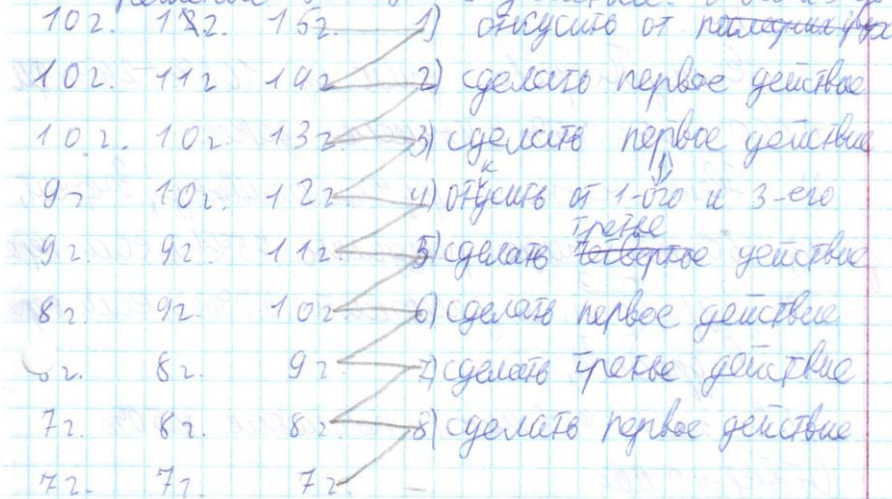 10г. 12г. 15г. 1) откусить от
10г. 11г 14г 2) сделать первое действие
10г. 10г. 13г 3) сделать первое действие
9г 10г. 12г 4) откусить от 1-ого и 3-его
9г. 9г. 11г. 5) сделать третье действие
8г. 9г. 10г. 6) сделать первое действие
8г. 8г. 9г. 7) сделать третье действие
7г. 8г. 8г. 8) сделать первое действие
7г. 7г. 7г.